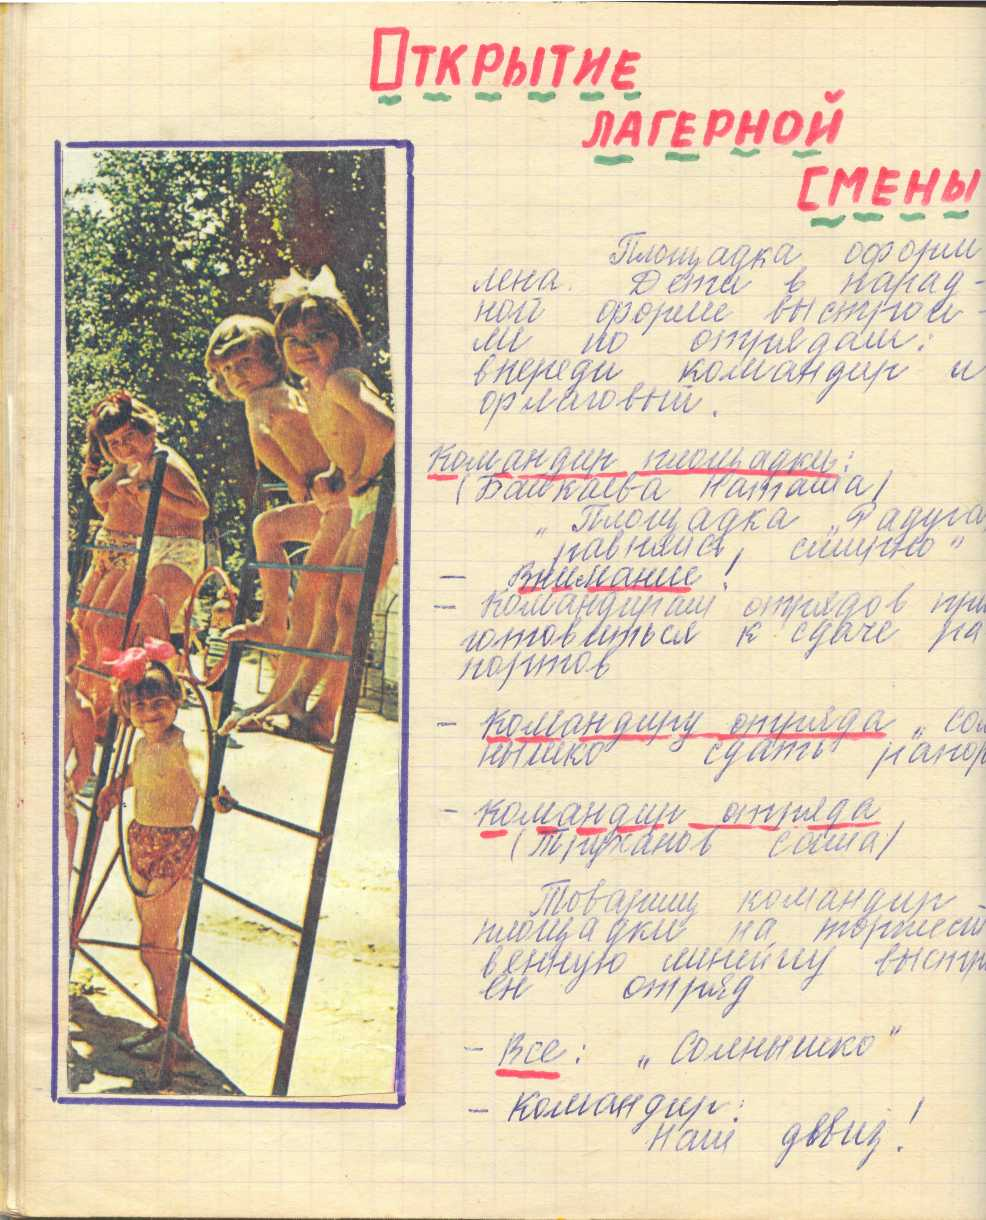 Открытие
лагерной
смены
Площадка оформ
лена. Дети в парад-
ной форме выстрои-
ли по отрядам:
впереди командир и
флаговый.
Командир площадки:
(Башкаева Наташа)
„Площадка „Радуга
равняйсь, смирно"
- Внимание!
- Командирам отрядов при
готовиться к сдаче ра
портов
- Командиру отряда „Сол
нышко сдать рапор
- Командир отряда
(Труханов Саша)
Товарищ командир
площадки на торжест
венную линейку выстро
ен отряд
- Все: „Солнышко"
- Командир:
Наш девиз!